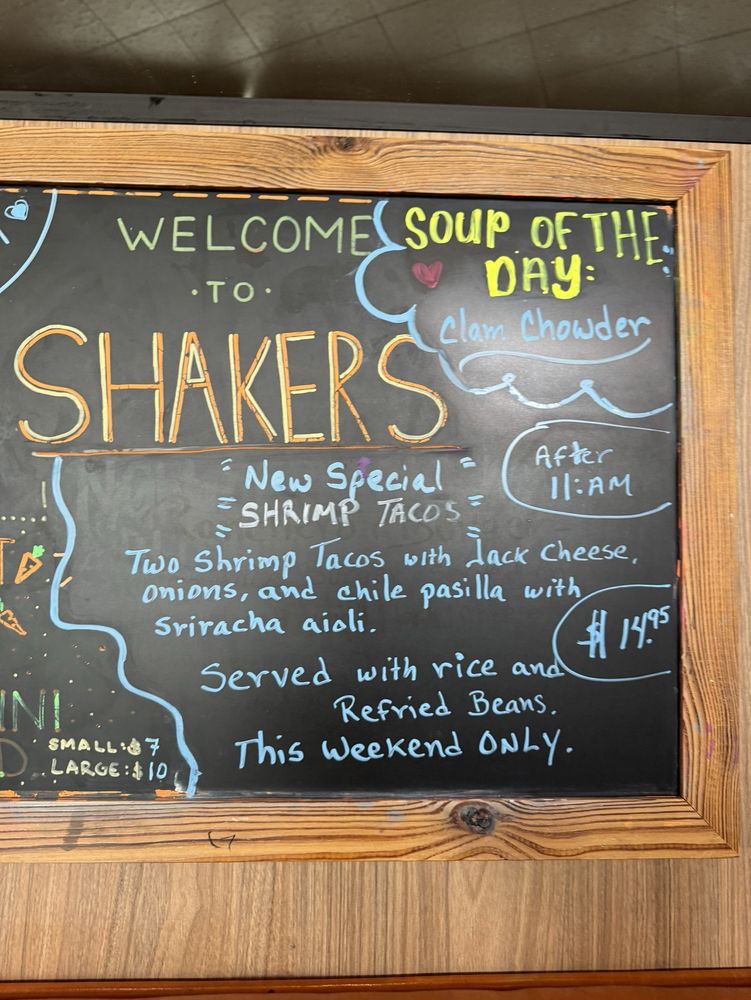 WELCOME
·TO·
SHAKERS
SOUP OF THE
DAY:
Clam Chowder
"New Special"
SHRIMP TACOS
After
11:AM
Two Shrimp Tacos with Jack Cheese,
onions, and chile pasilla with
Sriracha aioli.
$14.95
Served with rice and
Refried Beans.
This Weekend ONLY.
SMALL:$7
LARGE:$10